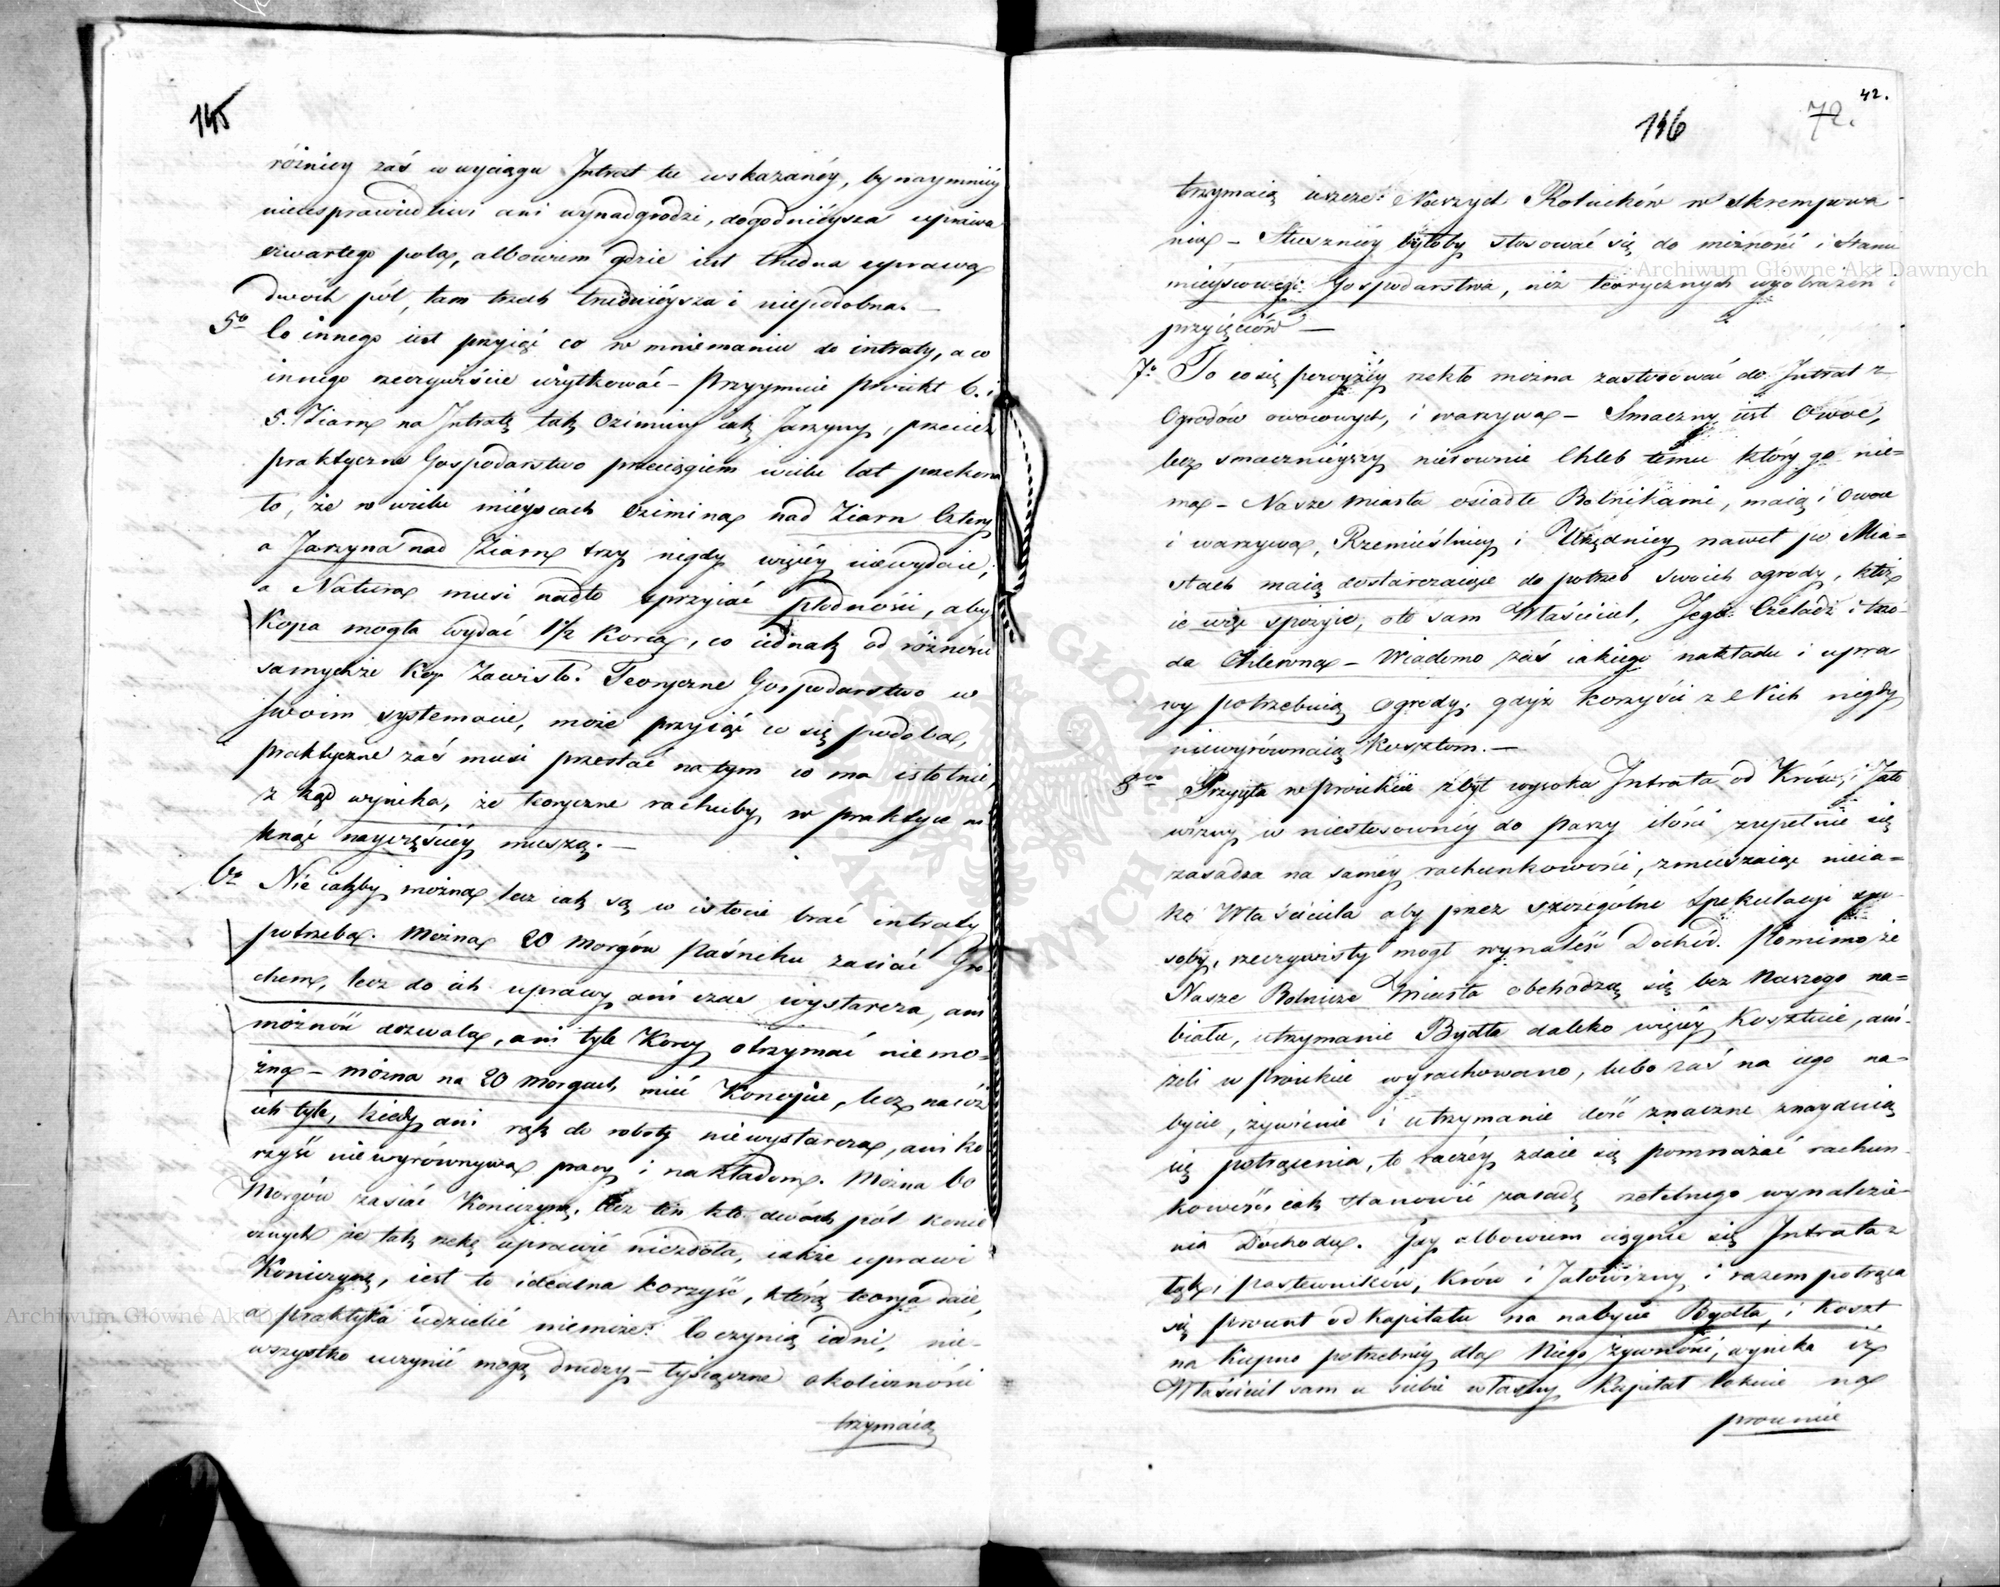 145
różnicy zaś w wyciągu Intrat tu wskazanéy, by naymniéy
nieusprawiedliwi ani wynadgrodzi, dogodnieysza uprawa
czwartego pola, albowiem gdzie iest trudna uprawa
dwóch pól, tam trzech trudnieysza i niepodobna. —
5to Co innego iest przyiąć co w mniemaniu do intraty, a co
innego rzeczywiście użytkować — Przyymuie proiekt 6. i
5. Ziarn na Intratę tak Oziminy iak Jarzyny, przecież
praktyczne Gospodarstwo przeciągiem wielu lat przekona
to, że w wielu mieyscach Ozimina nad Ziarn Cztery
a Jarzyna nad Ziarn trzy nigdy więcéy niewydaie,
a Natura musi nadto sprzyiać płodności, aby
Kopa mogła wydać 1½ Korca, co iednak od różności
samychże Kop Zawisło. Teoryczne Gospodarstwo w
swoim systemacie, może przyiąć co się podoba,
praktyczne zaś musi przestać na tym co ma istotnie,
z kąd wynika, że teoryczne rachuby, w praktyce
knąć nayczęściéy muszą. —
6te Nie iakby można lecz iak są w istocie brać intraty
potrzeba. Można 20 Morgów Paśniku zasiać Gro-
chem, lecz do ich uprawy ani czas wystarcza, ani
możność dozwala, ani tyle Korcy otrzymać niemo-
żna — można na 20 Morgach mieć Koniczyne, lecz na cóż
ich tyle, kiedy ani rąk do roboty niewystarcza, ani ko
rzyść niewyrównywa pracy i nakładom. Można 60
Morgów zasiać Koniczyną, lecz ten kto dwóch pól konie
cznych że tak rzekę uprawić niezdoła, iakże uprawi
Koniczynę, iest to idealna korzyść, którą teorya daie,
a praktyka udzielić niemoże. Co czynią iedni, nie-
wszystko uczynić mogą drudzy — tysiączne okoliczności
trzymaią
146
72.
42.
trzymaią ieszcze Naszych Rolników w skrempowa
niu — Słuszniéy byłoby stosować się do możności i stanu
mieyscowego Gospodarstwa, niż teorycznych wyobrażeń i
przyięciów —
7o To co się powyżéy rzekło można zastosować do Intrat z
Ogrodów owocowych, i warzywa — Smaczny iest Owoc,
lecz smacznieyszy nierównie Chleb temu który go nie-
ma — Nasze Miasta osiadłe Rolnikami, maią i Owoce
i warzywa, Rzemieślnicy i Urzędnicy nawet po Mia-
stach maią dostarczaiące do potrzeb swoich ogrody, któż
ie więc spożyie, oto sam Właściciel, Jego Czeladź i trzo-
da Chlewna — Wiadomo zaś iakiego nakładu i upra
wy potrzebuią Ogrody, gdyż korzyści z Nich nigdy
niewyrównaią Kosztom. —
8vo Przyięta w proiekcie zbyt wysoka Intrata od Krów, i Jało
wizny w niestosownéy do paszy ilości zupełnie się
zasadza na saméy rachunkowości, zmuszaiąc nieia-
ko Właściciela aby przez szczególne Spekulacyi spo-
soby, rzeczywisty mógł wynaleść Dochód. Pomimo że
Nasze Rolnicze Miasta obchodzą się bez Naszego na-
biału, utrzymanie Bydła daleko więcéy Kosztuie, ani-
żeli w proiekcie wyrachowano, lubo zaś na iego na-
bycie, żywienie i utrzymanie dość znaczne znayduią
się potrącenia, to raczéy zdaie się pomnażać rachun-
kowość, iak stanowić zasadę rzetelnego wynalezie-
nia Dochodu. Gdy albowiem ciągnie się Intrata z
łąk, pastewników, Krów i Jałowizny i razem potrąca
się procent od Kapitału na nabycie Bydła, i Koszt
na Kupno potrzebnéy dla Niego żywności, wynika iż
Właściciel sam u siebie własny Kapitał lokuie na
procencie
Archiwum Główne Akt Dawnych
Archiwum Główne Akt